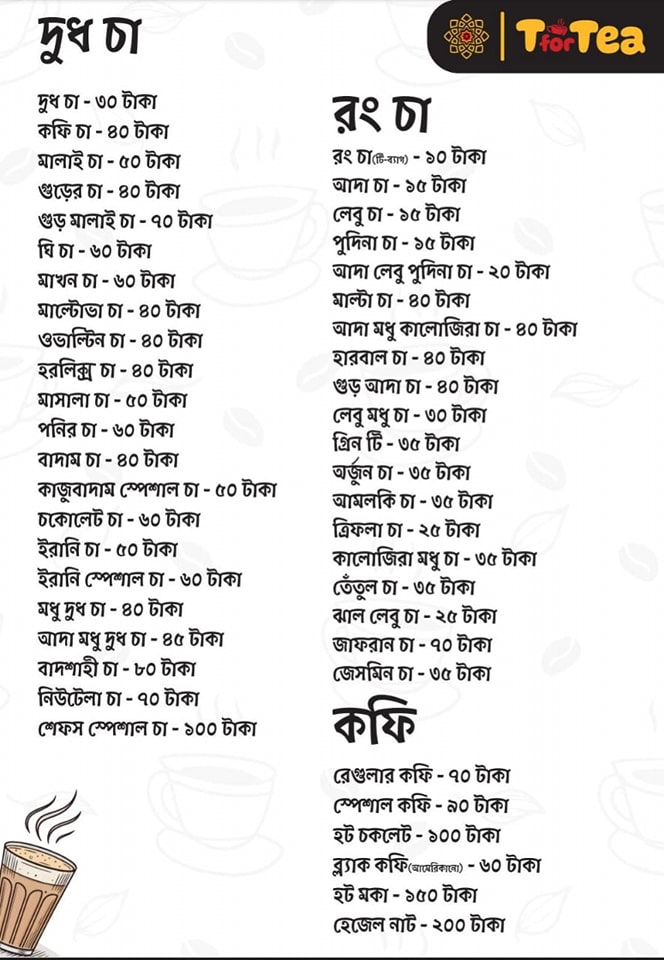 দুধ চা
দুধ চা - ৩০ টাকা
কফি চা - ৪০ টাকা
মালাই চা - ৫০ টাকা
গুড়ের চা - ৪০ টাকা
গুড় মালাই চা - ৭০ টাকা
ঘি চা - ৬০ টাকা
মাখন চা - ৬০ টাকা
মাল্টোভা চা - ৪০ টাকা
ওভাল্টিন চা - ৪০ টাকা
হরলিক্স চা - ৪০ টাকা
মাসালা চা - ৫০ টাকা
পনির চা - ৬০ টাকা
বাদাম চা - ৪০ টাকা
কাজুবাদাম স্পেশাল চা - ৫০ টাকা
চকোলেট চা - ৬০ টাকা
ইরানি চা - ৫০ টাকা
ইরানি স্পেশাল চা - ৬০ টাকা
মধু দুধ চা - ৪০ টাকা
আদা মধু দুধ চা - ৪৫ টাকা
বাদশাহী চা - ৮০ টাকা
নিউটেলা চা - ৭০ টাকা
শেফস স্পেশাল চা - ১০০ টাকা
T for Tea
রং চা
রং চা(টি-ব্যাগ) - ১০ টাকা
আদা চা - ১৫ টাকা
লেবু চা - ১৫ টাকা
পুদিনা চা - ১৫ টাকা
আদা লেবু পুদিনা চা - ২০ টাকা
মাল্টা চা - ৪০ টাকা
আদা মধু কালোজিরা চা - ৪০ টাকা
হারবাল চা - ৪০ টাকা
গুড় আদা চা - ৪০ টাকা
লেবু মধু চা - ৩০ টাকা
গ্রিন টি - ৩৫ টাকা
অর্জুন চা - ৩৫ টাকা
আমলকি চা - ৩৫ টাকা
ত্রিফলা চা - ২৫ টাকা
কালোজিরা মধু চা - ৩৫ টাকা
তেঁতুল চা - ৩৫ টাকা
ঝাল লেবু চা - ২৫ টাকা
জাফরান চা - ৭০ টাকা
জেসমিন চা - ৩৫ টাকা
কফি
রেগুলার কফি - ৭০ টাকা
স্পেশাল কফি - ৯০ টাকা
হট চকলেট - ১০০ টাকা
ব্ল্যাক কফি(আমেরিকানো) - ৬০ টাকা
হট মকা - ১৫০ টাকা
হেজেল নাট - ২০০ টাকা